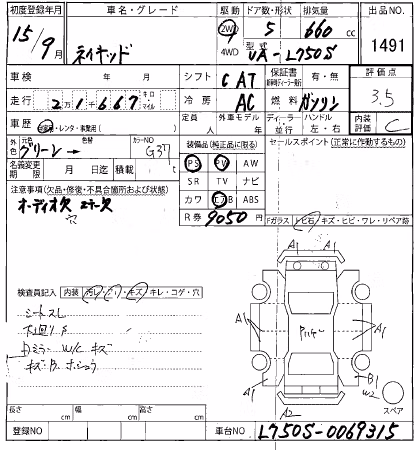 初度登録年月 車名・グレード 駆動 ドア数・形状 排気量 出品NO.
15/9月 ネイキッド 2WD 4WD 5 660 cc
UA-L750S 1491
車検 年 月 日 シフト C AT 保証書 有・無 評価点
走行 2万1千667 キロ マイル 冷房 AC 燃料 ガソリン 3.5
車歴 自家用・レンタ・事業用( ) 定員 人 外車モデル 年 ディーラー 並行 ハンドル 左・右 内装評価 C
外色 元色 グリーン→ 色替 カラーNO G37
名義変更期限 月 日迄 積載 t
装備品(純正品に限る) セールスポイント(正常に作動するもの)
PS PW AW
SR TV ナビ
カワ エアB ABS
R券 9050 円
注意事項(欠品・修復・不具合箇所および状態)
オーディオ欠
Fガラス トビ石・キズ・ヒビ・ワレ・リペア跡
検査員記入 内装 キズ・キレ・コゲ・穴
シートスレ
下廻りS
W/C キズ
A1 A1
A1 A1
A1 B1
W2
A2
スペア
長さ cm 幅 cm 高さ cm
登録NO 車台NO L750S-0069315